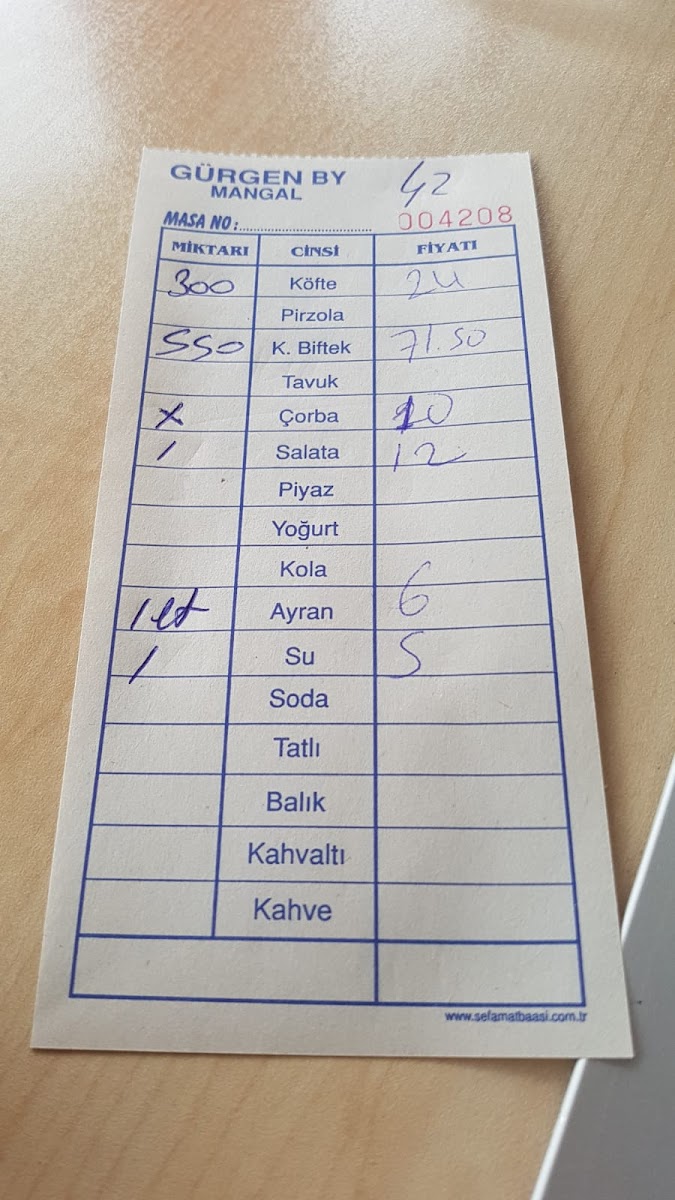 GÜRGEN BY
MANGAL
42
MASA NO:
004208
MİKTARI CİNSİ FİYATI
300 Köfte 24
Pirzola
550 K. Biftek 71.50
Tavuk
x Çorba 10
1 Salata 12
Piyaz
Yoğurt
Kola
1 lt Ayran 6
1 Su 5
Soda
Tatlı
Balık
Kahvaltı
Kahve
www.sefamatbaasi.com.tr